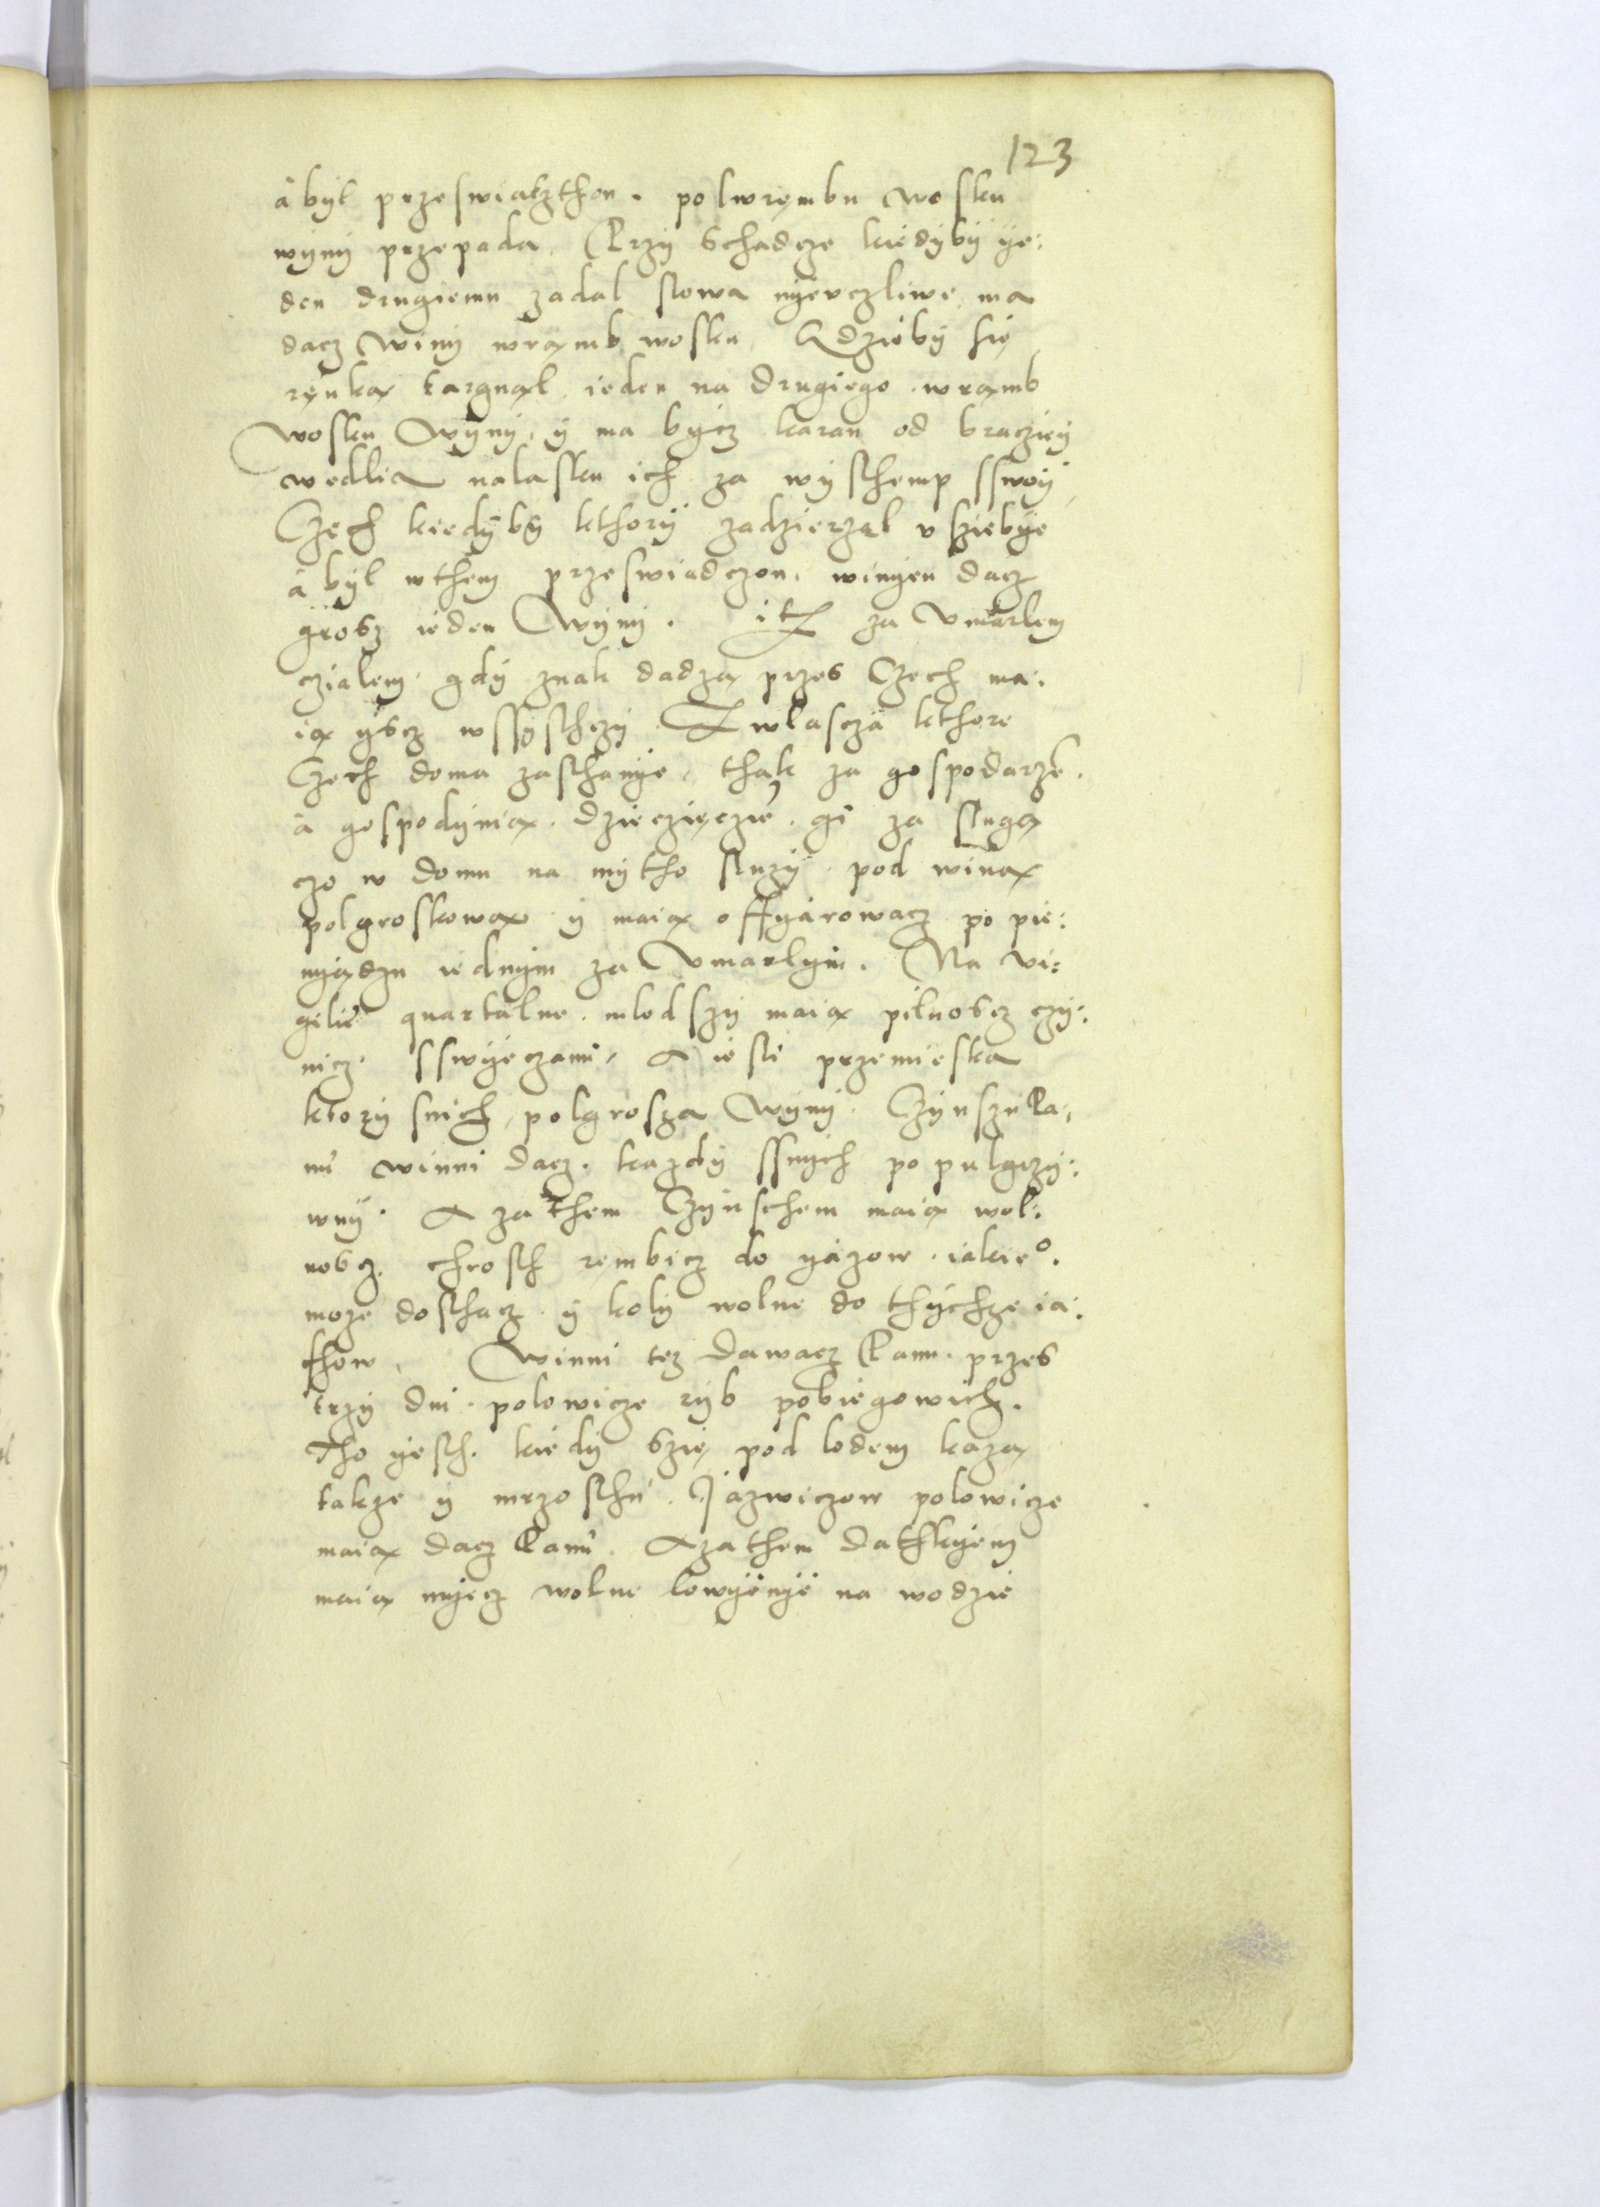 123
a był przeswiatzthon. polwrembu wosku
wyny przepada. Przy schadcze kiedyby ye:
den drugiemu zadal slowa nyeuczliwe, ma
dacz winy wramb wosku. Gdzieby sie
renka targnal ieden na drugiego. wramb
wosku wyny, y ma bycz karan od bracziey
wedlia nalasku ich za wysthemp sswoy
Czech kiedyby kthory zadzierzal v sziebye
a byl wthem przeswiadczon. winyen dacz
grosz ieden wyny. it za Vmarlem
czialem gdy znak dadza przes Czech ma:
ia yscz wssysthczy Zwlascza kthore
Czech doma zasthanye, thak za gospodarze.
a gospodynia. dzieczieczie. y za sluga
czo w domu na mytho sluzy pod wina
polgroskowa y maia offyarowacz po pie:
nyadzu iednym za Vmarlym. Na vi:
gilie quartalne. mlodszy maia pilnoscz czy:
nicz sswyeczami, A iesli przemieska
ktory snich, polgrosza wyny. Czynszu Pa:
nu winni dacz. kazdy ssnych po pulgrzy:
wny. A za them Czynschem maia wol:
noscz. chrosth rembicz do yazow. iakieo.
moze dosthacz y koly wolne do thychze ia:
show. Winni tez dawacz Panu. przes
trzy dni. polowicze ryb pobiegowich.
Tho yesth. kiedy szie pod lodem kaza
takze y mrzosthu. Jazwiczow polowicze
maia dacz Panu. A za them datkkyem
maia myecz wolne lowyenye na wodzie